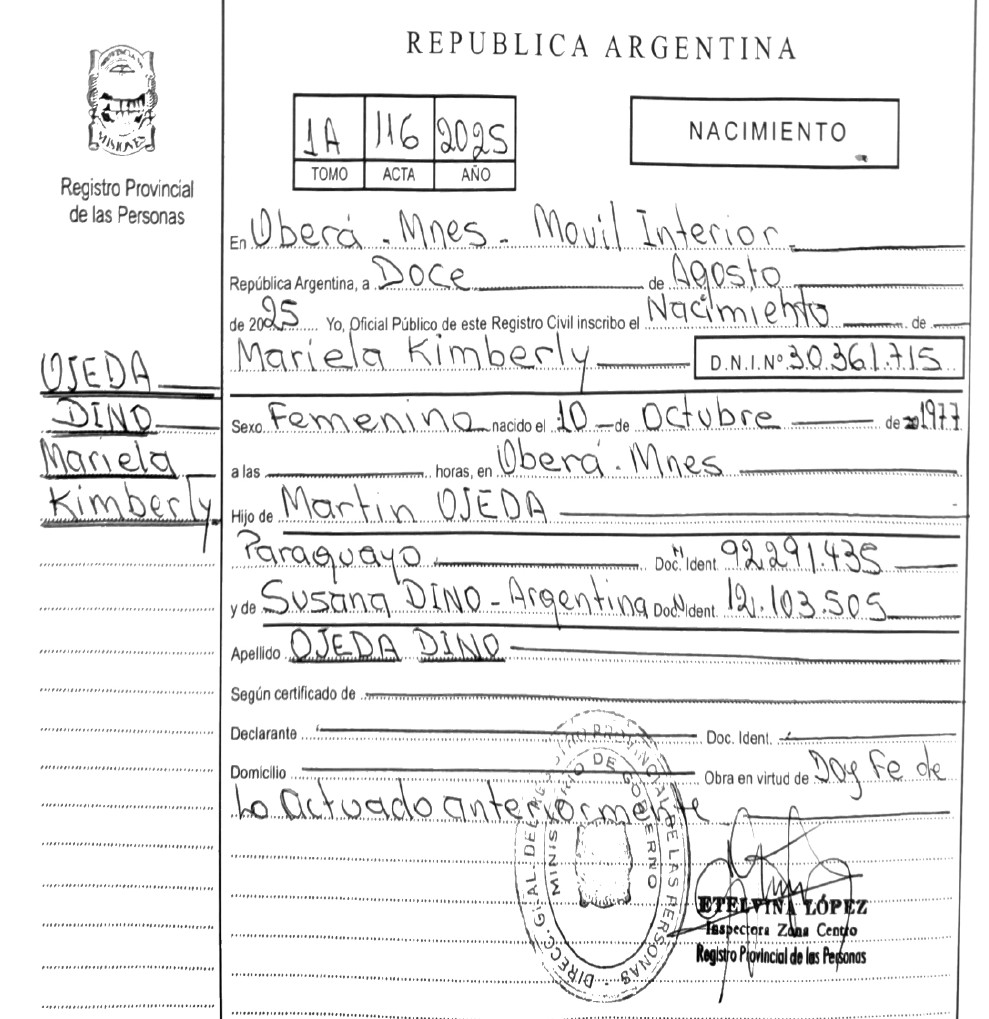 REPUBLICA ARGENTINA
MISIONES
Registro Provincial
de las Personas
1A 116 2025
TOMO ACTA AÑO
NACIMIENTO
En Oberá - Mnes - Movil Interior
República Argentina, a Doce de Agosto
de 2025 Yo, Oficial Público de este Registro Civil inscribo el Nacimiento de
Mariela Kimberly D.N.I.Nº 30.361.715
OJEDA
DINO
Mariela
Kimberly
Sexo Femenino nacido el 10 de Octubre de 1977
a las horas, en Oberá - Mnes
Hijo de Martin OJEDA
Paraguayo Doc. Ident 92.291.435
y de Susana DINO - Argentina Doc. Ident. 12.103.505
Apellido OJEDA DINO
Según certificado de
Declarante Doc. Ident.
Domicilio Obra en virtud de Doy Fe de
Lo Actuado anteriormente
DIRECC. GRAL. DEL REGISTRO PROVINCIAL DE LAS PERSONAS
MINISTERIO DE GOBIERNO
ETELVINA LÓPEZ
Inspectora Zona Centro
Registro Provincial de las Personas